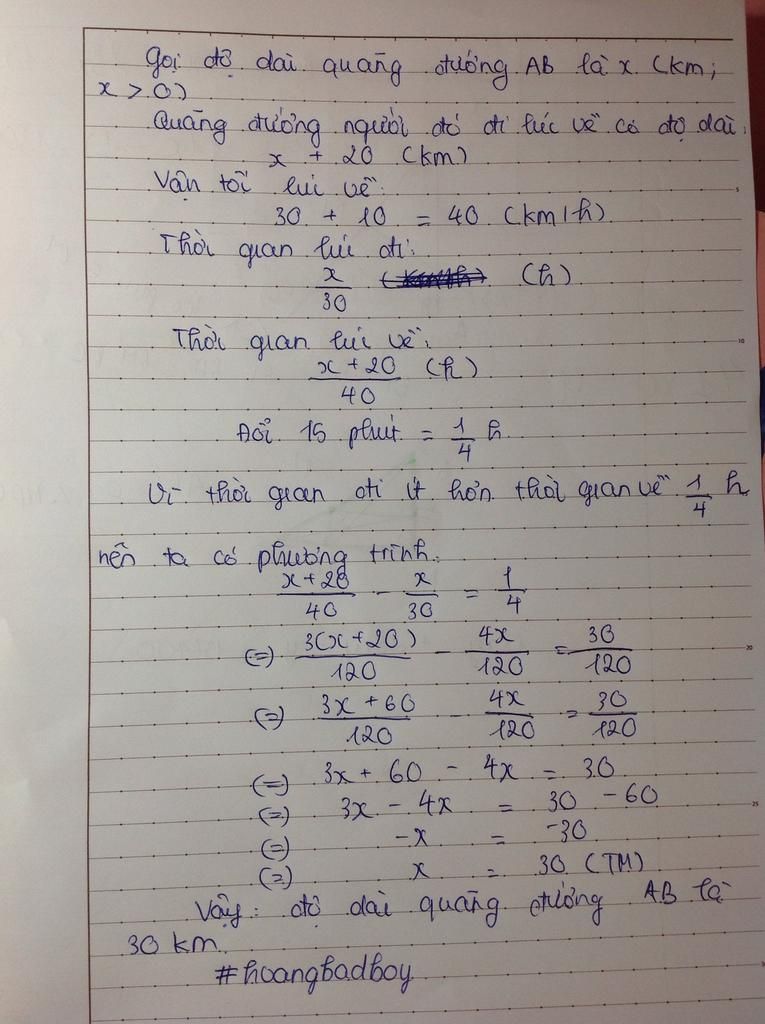 Gọi độ dài quãng đường AB là x (km;
x > 0)
Quãng đường người đó đi lúc về có độ dài:
x + 20 (km)
Vận tốc lúc về:
30 + 10 = 40 (km/h)
Thời gian lúc đi:
x/30 (h)
Thời gian lúc về:
(x + 20)/40 (h)
Đổi 15 phút = 1/4 h
Vì thời gian đi ít hơn thời gian về 1/4 h
nên ta có phương trình:
(x + 20)/40 - x/30 = 1/4
(=) 3(x+20)/120 - 4x/120 = 30/120
(=) (3x + 60)/120 - 4x/120 = 30/120
(=) 3x + 60 - 4x = 30
(=) 3x - 4x = 30 - 60
(=) -x = -30
(=) x = 30 (TM)
Vậy: độ dài quãng đường AB là
30 km.
#hoangbadboy
5
10
20
25